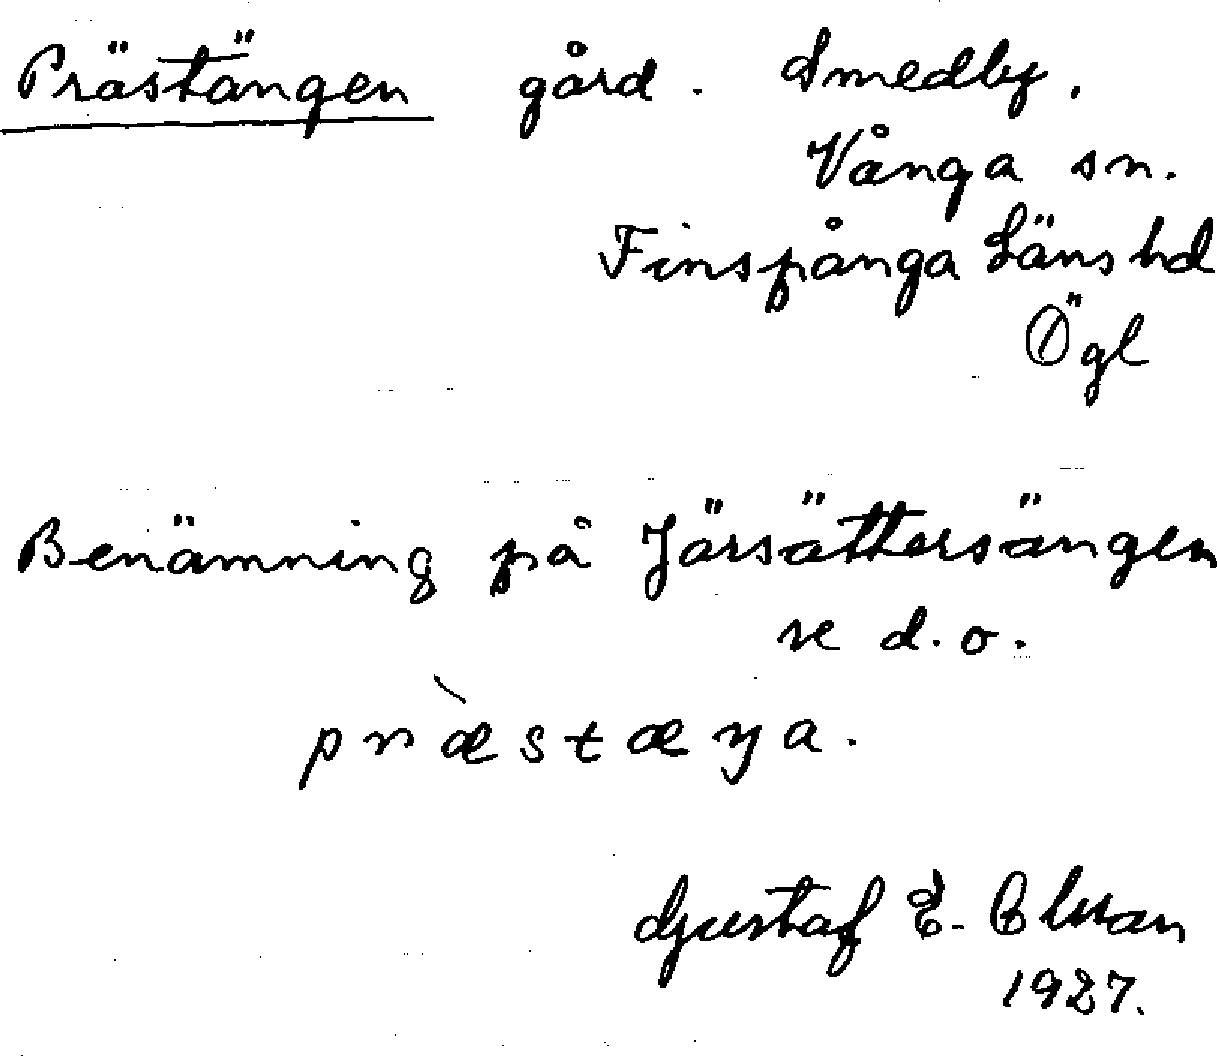 Prästängen gård. Smedby,
Vånga sn.
Finspånga Läns hd
Ögl
Benämning på Järsättersängen
se d.o.
prὰstæŋa.
Gustaf E.
1927.